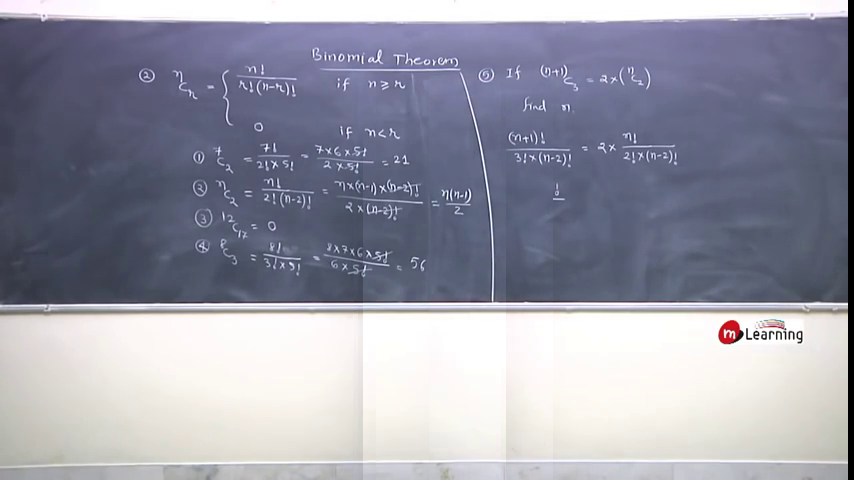 Binomial Theorem
② ⁿCᵣ = { n! / r!(n-r)! if n ≥ r
0 if n < r
① ⁷C₂ = 7! / 2! × 5! = 7×6×5! / 2×5! = 21
② ⁿC₂ = n! / 2!(n-2)! = n×(n-1)×(n-2)! / 2×(n-2)! = n(n-1) / 2
③ ¹²C₁₇ = 0
④ ⁸C₃ = 8! / 3!×5! = 8×7×6×5! / 6×5! = 56
⑤ If ⁽ⁿ⁺¹⁾C₃ = 2×(ⁿC₂)
find n.
(n+1)! / 3!×(n-2)! = 2× n! / 2!×(n-2)!
m Learning